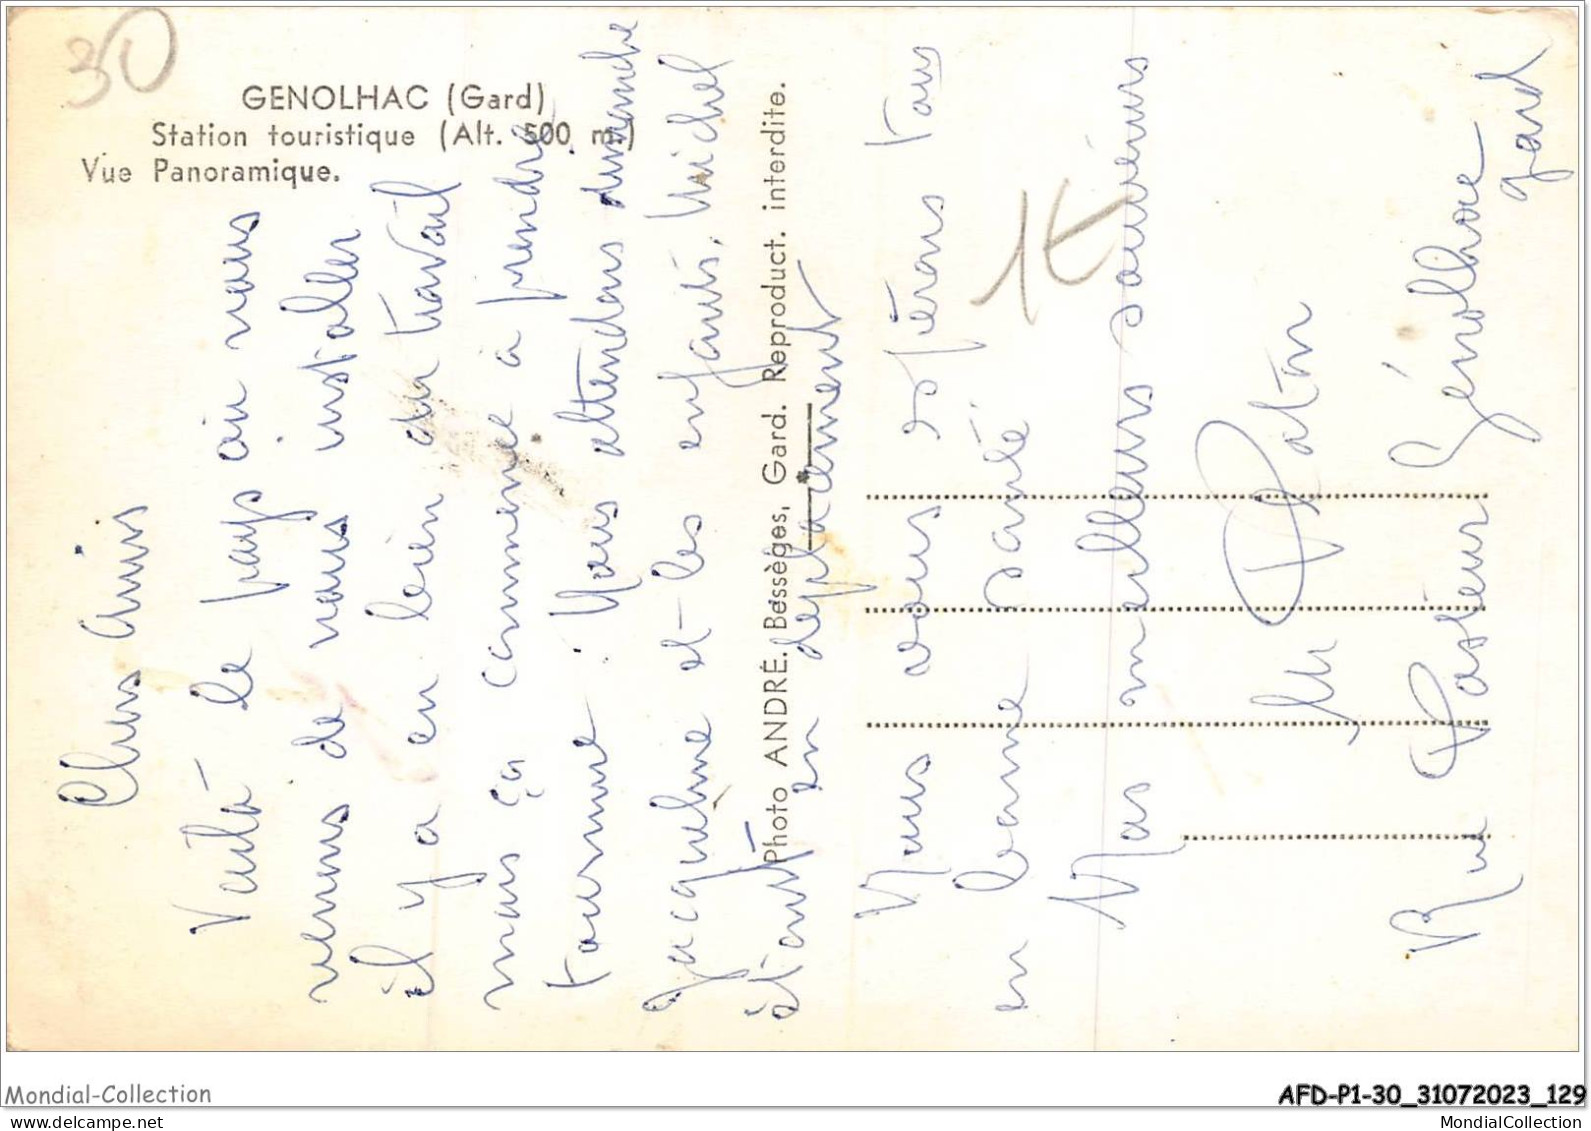 30
GENOLHAC (Gard)
Station touristique (Alt. 500 m.)
Vue Panoramique.
Chers Amis
Voilà le pays où nous
venons de nous installer
il y a en bien du travail
mais ça commence à prendre
tournure. Nous attendons dimanche
Jacqueline et les enfants, Michel
étant en déplacement
Photo ANDRÉ. Bessèges, Gard. Reproduct. interdite.
Nous vous espérons tous
en bonne santé
1€
Nos meilleurs souvenirs
Rue Pasteur Génolhac
Gard
Mondial-Collection
AFD-P1-30_31072023_129
www.delcampe.net
MondialCollection